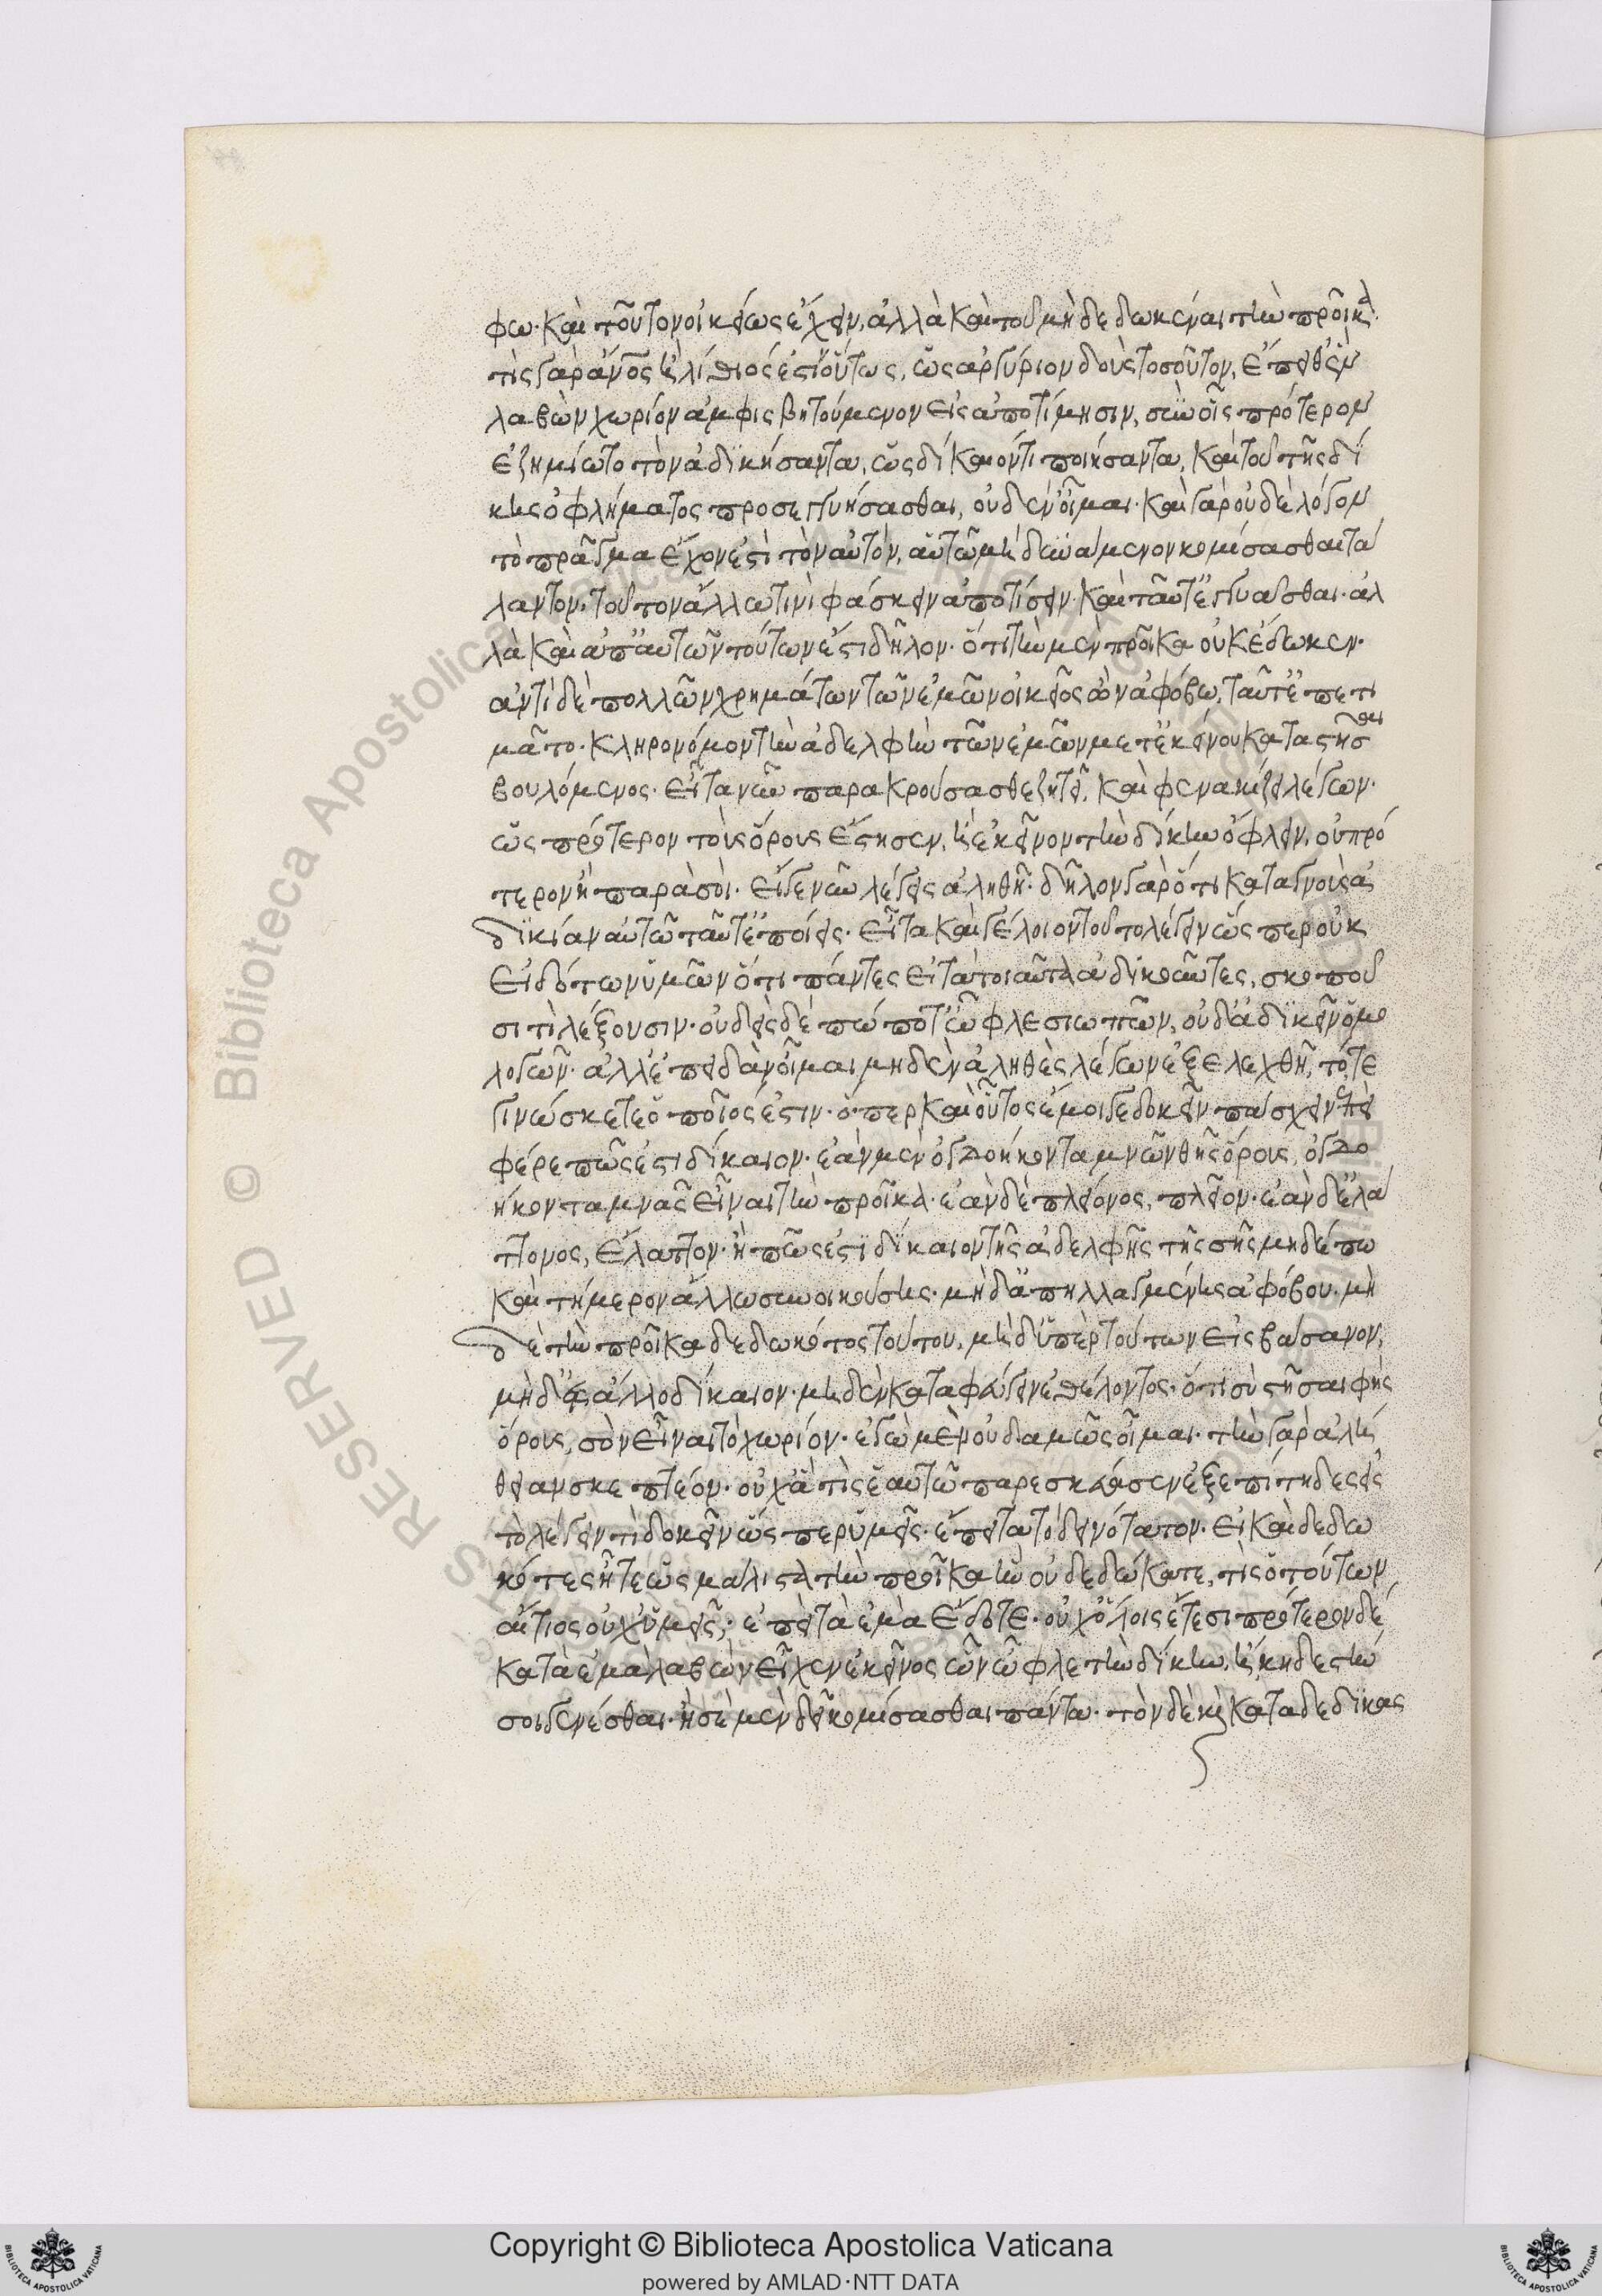 φω· καὶ τοῦτον οἰκείως ἔχειν, ἀλλὰ καὶ τοῦ μὴ δεδωκέναι τὴν προῖκα·
τίς γὰρ ἄνος ἠλίθιός ἐστι οὕτως, ὡς ἀργύριον δοὺς τοσοῦτον, ἔπειθ' ἓν
λαβὼν χωρίον ἀμφισβητούμενον εἰς ἀποτίμησιν, σὺν οἷς πρότερον
ἐζημίωτο τὸν ἀδικήσαντα, ὡς δίκαιόν τι ποιήσαντα, καὶ τοῦ τῆς δί
κης ὀφλήματος προσεγγυήσασθαι, οὐδέν' οἶμαι· καὶ γὰρ οὐδὲ λόγον
τὸ πρᾶγμα ἔχον ἐστὶ τὸν αὐτὸν, αὑτῶ μὴ δυνάμενον κομίσασθαι τά
λαντον, τοῦτον ἄλλω τινὶ φάσκειν ἀποτίσειν· καὶ ταῦτ' ἐγγυᾶσθαι· ἀλ
λὰ καὶ ἀπ' αὐτῶν τούτων ἐστὶ δῆλον· ὅτι τὴν μὲν προῖκα οὐκ ἔδωκεν·
ἀντὶ δὲ πολλῶν χρημάτων τῶν ἐμῶν οἰκεῖος ὢν ἀφόβω, ταῦτ' ἐπετι
μᾶτο· κληρονόμον τὴν ἀδελφὴν τῶν ἐμῶν μετ' ἐκείνου καταστῆσαι
βουλόμενος· εἶτα νῦν παρακρούσασθε ζητεῖ, καὶ φενακίζει λέγων·
ὡς πρότερον τοὺς ὅρους ἔστησεν, ἢ ἐκεῖνον τὴν δίκην ὀφλεῖν, οὐ πρό
τερον ἢ παρὰ σοὶ· εἴ γε νῦν λέγεις ἀληθῆ· δῆλον γὰρ ὅτι καταγνοὺς ἀ
δικίαν αὐτῶ ταῦτ' ἐποίεις· εἶτα καὶ γέλοιον τοῦτο λέγειν ὥσπερ οὐκ
εἰδότων ὑμῶν ὅτι πάντες εἰ τὰ τοιαῦτα ἀδικοῦντες, σκοποῦ
σι τὶ λέξουσιν· οὐδεὶς δὲ πώποτ' ὦφλε σιωπῶν, οὐδ' ἀδικεῖν ὁμο
λογῶν· ἀλλ' ἐπειδὰν οἶμαι μηδὲν ἀληθὲς λέγων ἐξελεχθῆ, τότε
γινώσκεται ὁποῖός ἐστιν· ὅπερ καὶ οὗτος ἔμοιγε δοκεῖν πάσχειν ἐπεὶ
φέρε πῶς ἐστι δίκαιον· ἐὰν μὲν ὀγδοήκοντα μνῶν θῆς ὅρους, ὀγδο
ήκοντα μνᾶς εἶναι τὴν προῖκα· ἐὰν δὲ πλείονος, πλεῖον· ἐὰν δ' ἐλά
ττονος, ἔλαττον· ἢ πῶς ἐστι δίκαιον τῆς ἀδελφῆς τῆς σῆς μηδέπω
καὶ τήμερον ἄλλω συνοικούσης· μὴ δ' ἀπηλλαγμένης ἀφόβου· μὴ
δὲ τὴν προῖκα δεδωκότος τούτου, μὴ δ' ὑπὲρ τούτων εἰς βάσανον,
μὴδ' εἰς ἄλλο δίκαιον· μηδὲν καταφεύγειν ἐθέλοντος· ὅτι σὺ στῆσαι φὴς
ὅρους, σὸν εἶναι τὸ χωρίον· ἐγὼ μὲν οὐδαμῶς οἶμαι· τὴν γὰρ ἀλή
θειαν σκεπτέον· οὐχ ἅ τις ἑαυτῶ παρεσκεύασεν ἐξεπίτηδες εἰς
τὸ λέγειν τὶ δοκεῖν ὥσπερ ὑμεῖς· ἔπειτα τὸ δεινότατον· εἰ καὶ δεδω
κότες ἦτε ὡς μάλιστα τὴν προῖκα ἣν οὐ δεδώκατε, τίς ὁ τούτων
αἴτιος οὐχ ὑμεῖς; ἐπεὶ τὰ ἐμὰ ἔδοτε· οὐχ ὅλοις ἔτεσι πρότερον δέ
κα τὰ ἐμὰ λαβὼν εἶχεν ἐκεῖνος ὧν ὦφλε τὴν δίκην, ἢ κηδεστήν
σοι γενέσθαι· ἢ σὲ μὲν δεῖ κομίσασθαι πάντα· τὸν δὲ καὶ καταδεδικας